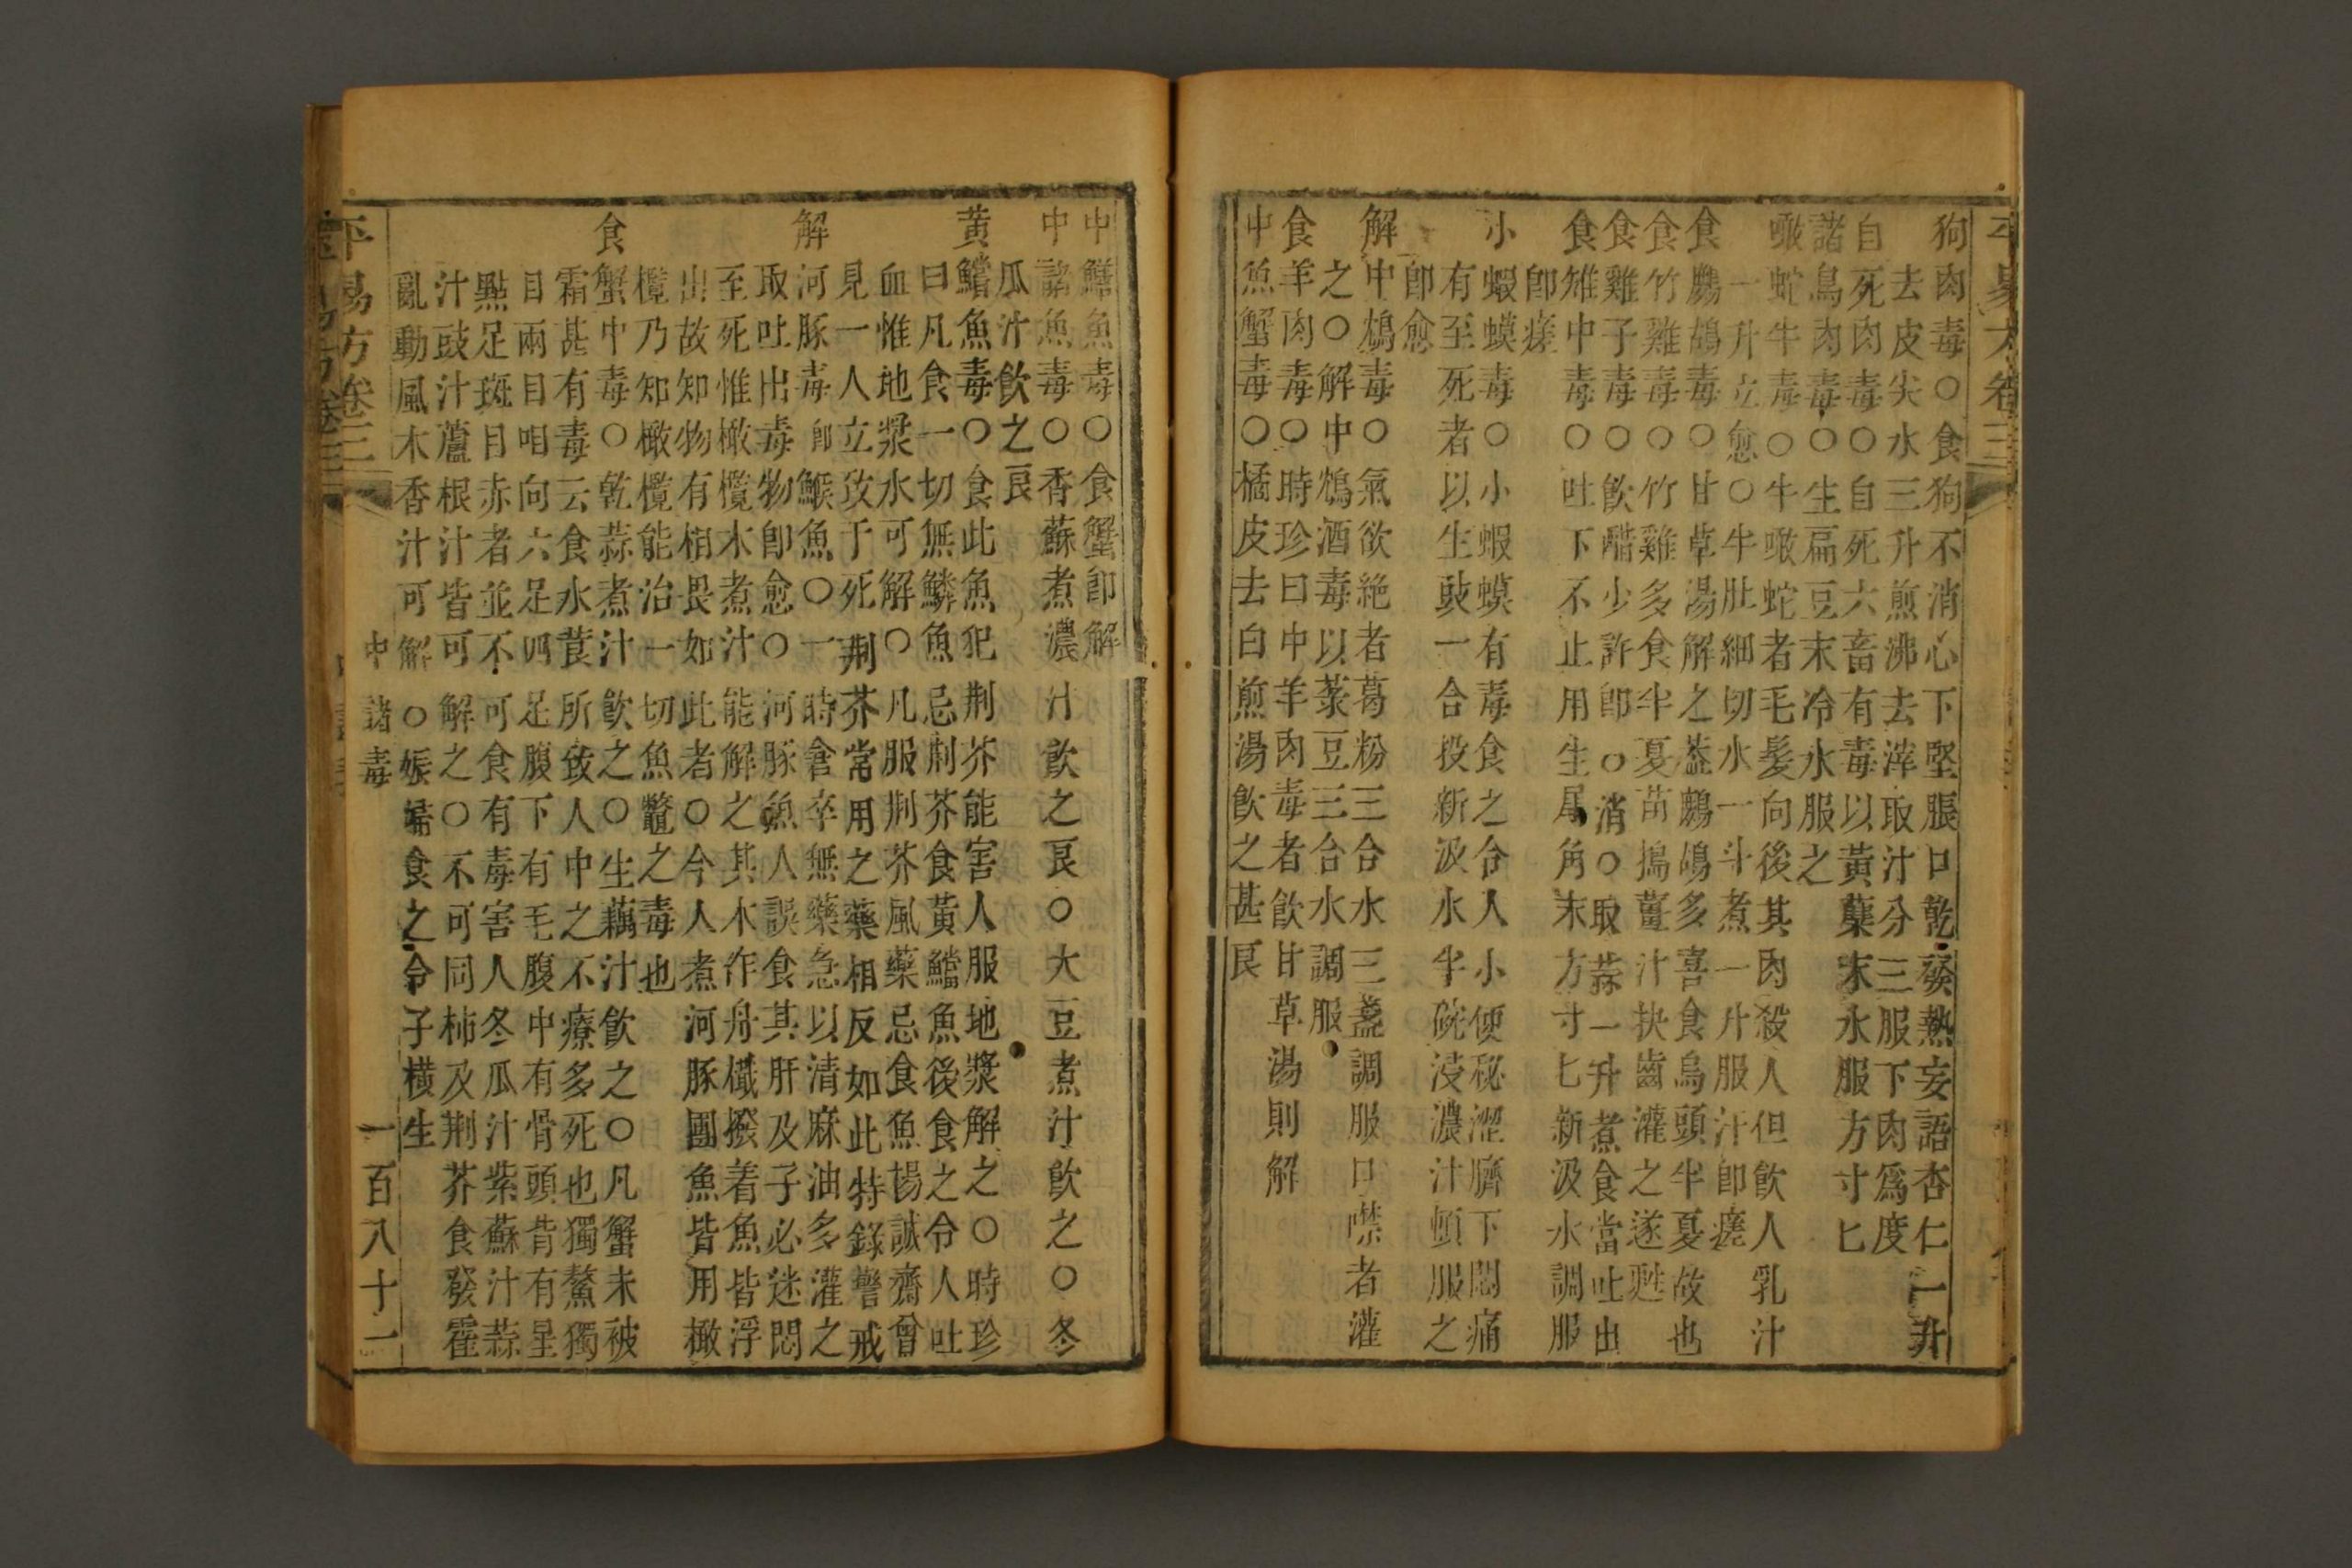 狗肉毒○食狗不消心下堅脹口乾發熱妄語杏仁一升
去皮尖水三升煎沸去滓取汁分三服下肉爲度
自死肉毒○自死六畜有毒以黃蘗末水服方寸匕
諸鳥肉毒○生扁豆末冷水服之
噉蛇牛毒○牛噉蛇者毛髮向後其肉殺人但飲人乳汁
一升立愈○牛肚細切水一斗煮一升服汁即瘥
食鷓鴣毒○甘草湯解之蓋鷓鴣多喜食烏頭半夏故也
食竹雞毒○竹雞多食半夏苗搗薑汁抉齒灌之遂甦
食雞子毒○飲醋少許即○消○取蒜一升煮食當吐出
食雉中毒○吐下不止用生犀角末方寸匕新汲水調服
即瘥
小蝦蟆毒○小蝦蟆有毒食之令人小便秘澀臍下悶痛
有至死者以生豉一合投新汲水半碗浸濃汁頓服之
即愈
解中鴆毒○氣欲絶者葛粉三合水三盞調服口噤者灌
之○解中鴆酒毒以菉豆三合水調服
食羊肉毒○時珍曰中羊肉毒者飲甘草湯則解
中魚蟹毒○橘皮去白煎湯飲之甚良
中鱔魚毒○食蟹即解
中諸魚毒○香蘇煮濃汁飲之良○大豆煮汁飲之○冬
瓜汁飲之良
黃鱨魚毒○食此魚犯荆芥能害人服地漿解之○時珍
曰凡食一切無鱗魚忌荆芥食黃鱨魚後食之令人吐
血惟地漿水可解○凡服荆芥風藥忌食魚楊誠齋曾
見一人立致于死荆芥常用之藥相反如此特錄警戒
解河豚毒即鯸魚○一時倉卒無藥急以清麻油多灌之
取吐出毒物即愈○河豚魚人誤食其肝及子必迷悶
至死惟橄欖木煮汁能解之其木作舟檝撥着魚皆浮
出故知物有相畏如此者○今人煮河豚團魚皆用橄
欖乃知橄欖能治一切魚鼈之毒也
食蟹中毒○乾蒜煮汁飲之○生藕汁飲之○凡蟹未被
霜甚有毒云食水莨所致人中之不療多死也獨螯獨
目兩目相向六足四足腹下有毛腹中有骨頭背有星
點足斑目赤者並不可食有毒害人冬瓜汁紫蘇汁蒜
汁豉汁蘆根汁皆可解之○不可同柿及荆芥食發霍
亂動風木香汁可解○娠婦食之令子橫生
平易方卷三 中諸毒 一百八十二